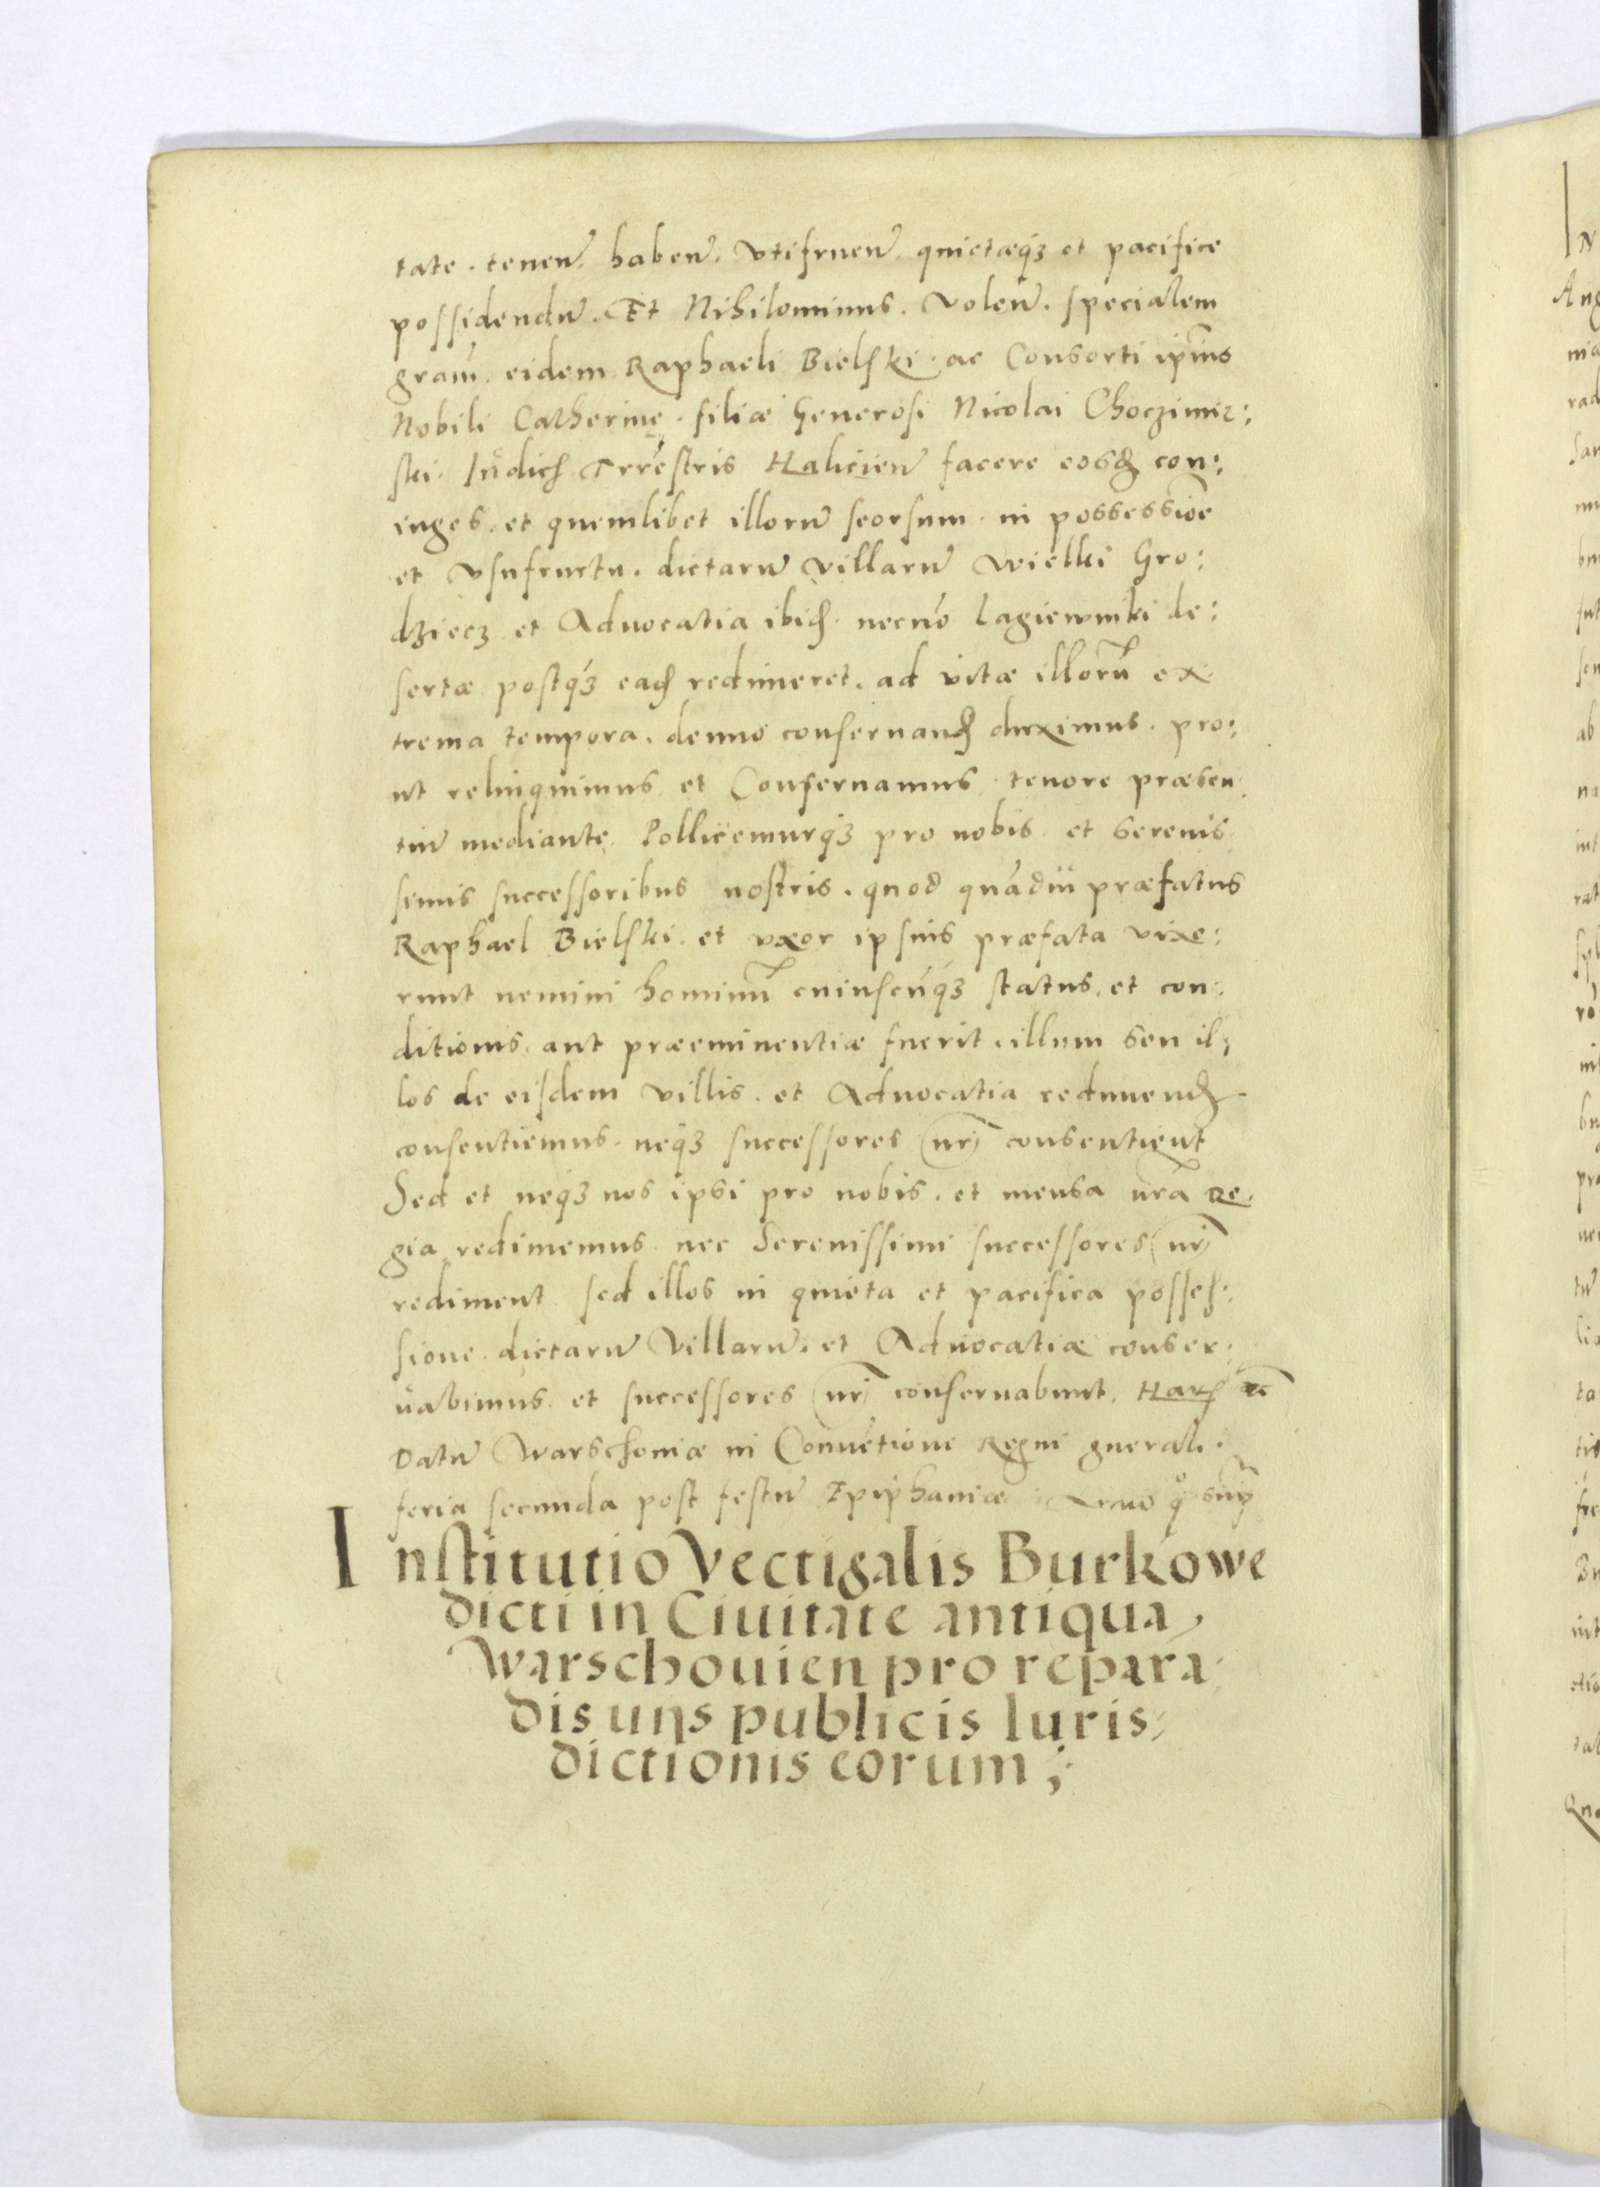 tate. tenen̄. haben̄. vtifruen̄. quietæq́ꝫ et pacifice
possidendū. Et Nihilominus. volen̄. specialem
gram̄. eidem Raphaeli Bielski. ac Consorti ip̄ius
Nobili Catherinę. filiæ Generosi Nicolai Choczimir:
ski. Iudicꝭ Trr̄estris Halicien̄ facere eosdꝭ con:
iuges. et quemlibet illorū seorsum. in possessiōe
et vsufructu. dictarū villarū Wielki Gro:
dziecz et Aduocatia ibidꝭ. necnō Lagiewniki de:
sertæ postq́ꝫ eadꝭ redimeret. ad vitæ illorū ex
trema tempora. denuo conseruandꝭ duximus. pro:
ut relinquimus et Conseruamus tenore præsen
tiū mediante. Pollicemurq́ꝫ pro nobis. et serenis
simis successoribus nostris. quod quādiu præfatus
Raphael Bielski. et vxor ipsius præfata vixe:
runt nemini hominū cuiuscūq́ꝫ status. et con:
ditionis. aut præeminentiæ fuerit. illum seu il:
los de eisdem villis. et Aduocatia redimendꝭ
consentiemus. neq́ꝫ successores nr̄i consentient
Sed et neq́ꝫ nos ipsi pro nobis. et mensa nr̄a Re.
gia redimemus. nec Serenissimi successores nr̄i
rediment sed illos in quieta et pacifica posses:
sione dictarū Villarū. et Aduocatiæ conser:
uabimus. et successores nr̄i conseruabunt. Harꝭ etc̄
Datū Warschouiæ in Conuētione Regni gnerali.
feria secunda post festū Epiphaniæ Anno q° sup̄
Institutio Vectigalis Burkowe
dicti in Ciuitate antiqua
Warschouien pro repara
dis uijs publicis Iuris
dictionis eorum;